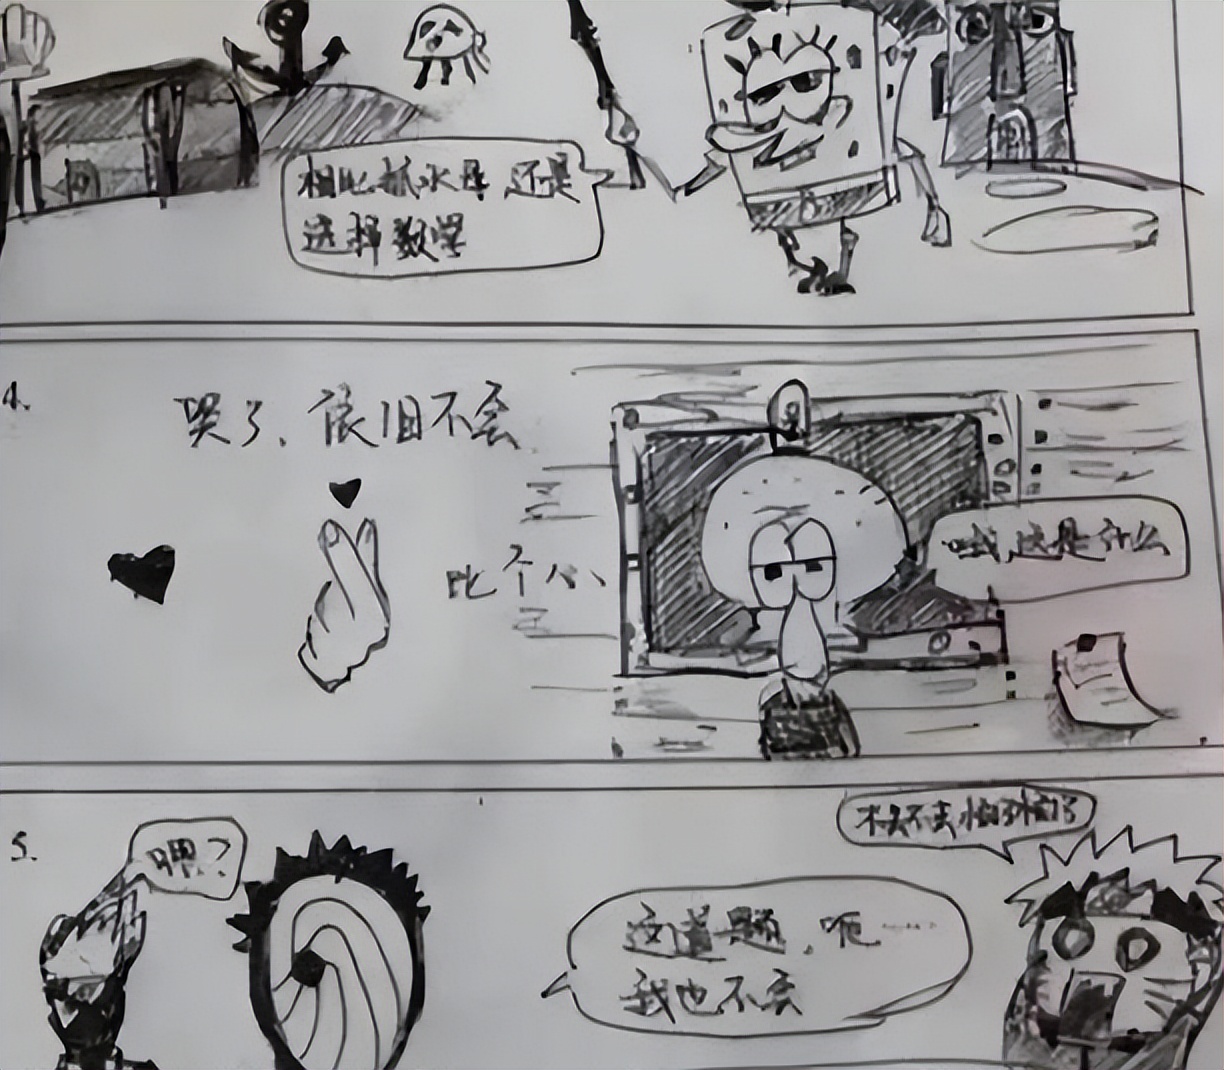 相比抓水母,还是
选择数学
4.
哭了、依旧不会
比个心、
哦,这是什么
5.
怕了怕了
这道题,呃……
我也不会